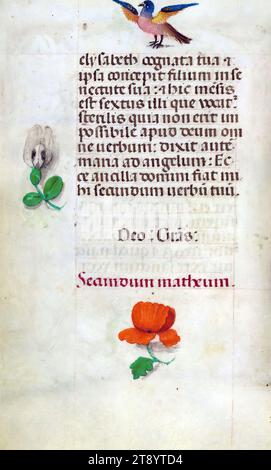 elysabeth cognata tua &
ipsa concepit filium in se
nectute sua: & hic mēsis
est sextus illi que vocat'
sterilis quia non erit im
possibile apud deum om
ne verbum: dixit autē
maria ad angelum: Ec
ce ancilla domini fiat mi
hi secundum verbū tuū.
Deo: Grās:
Secundum matheum.
alamy
Image ID: 2T8YTD4
www.alamy.com